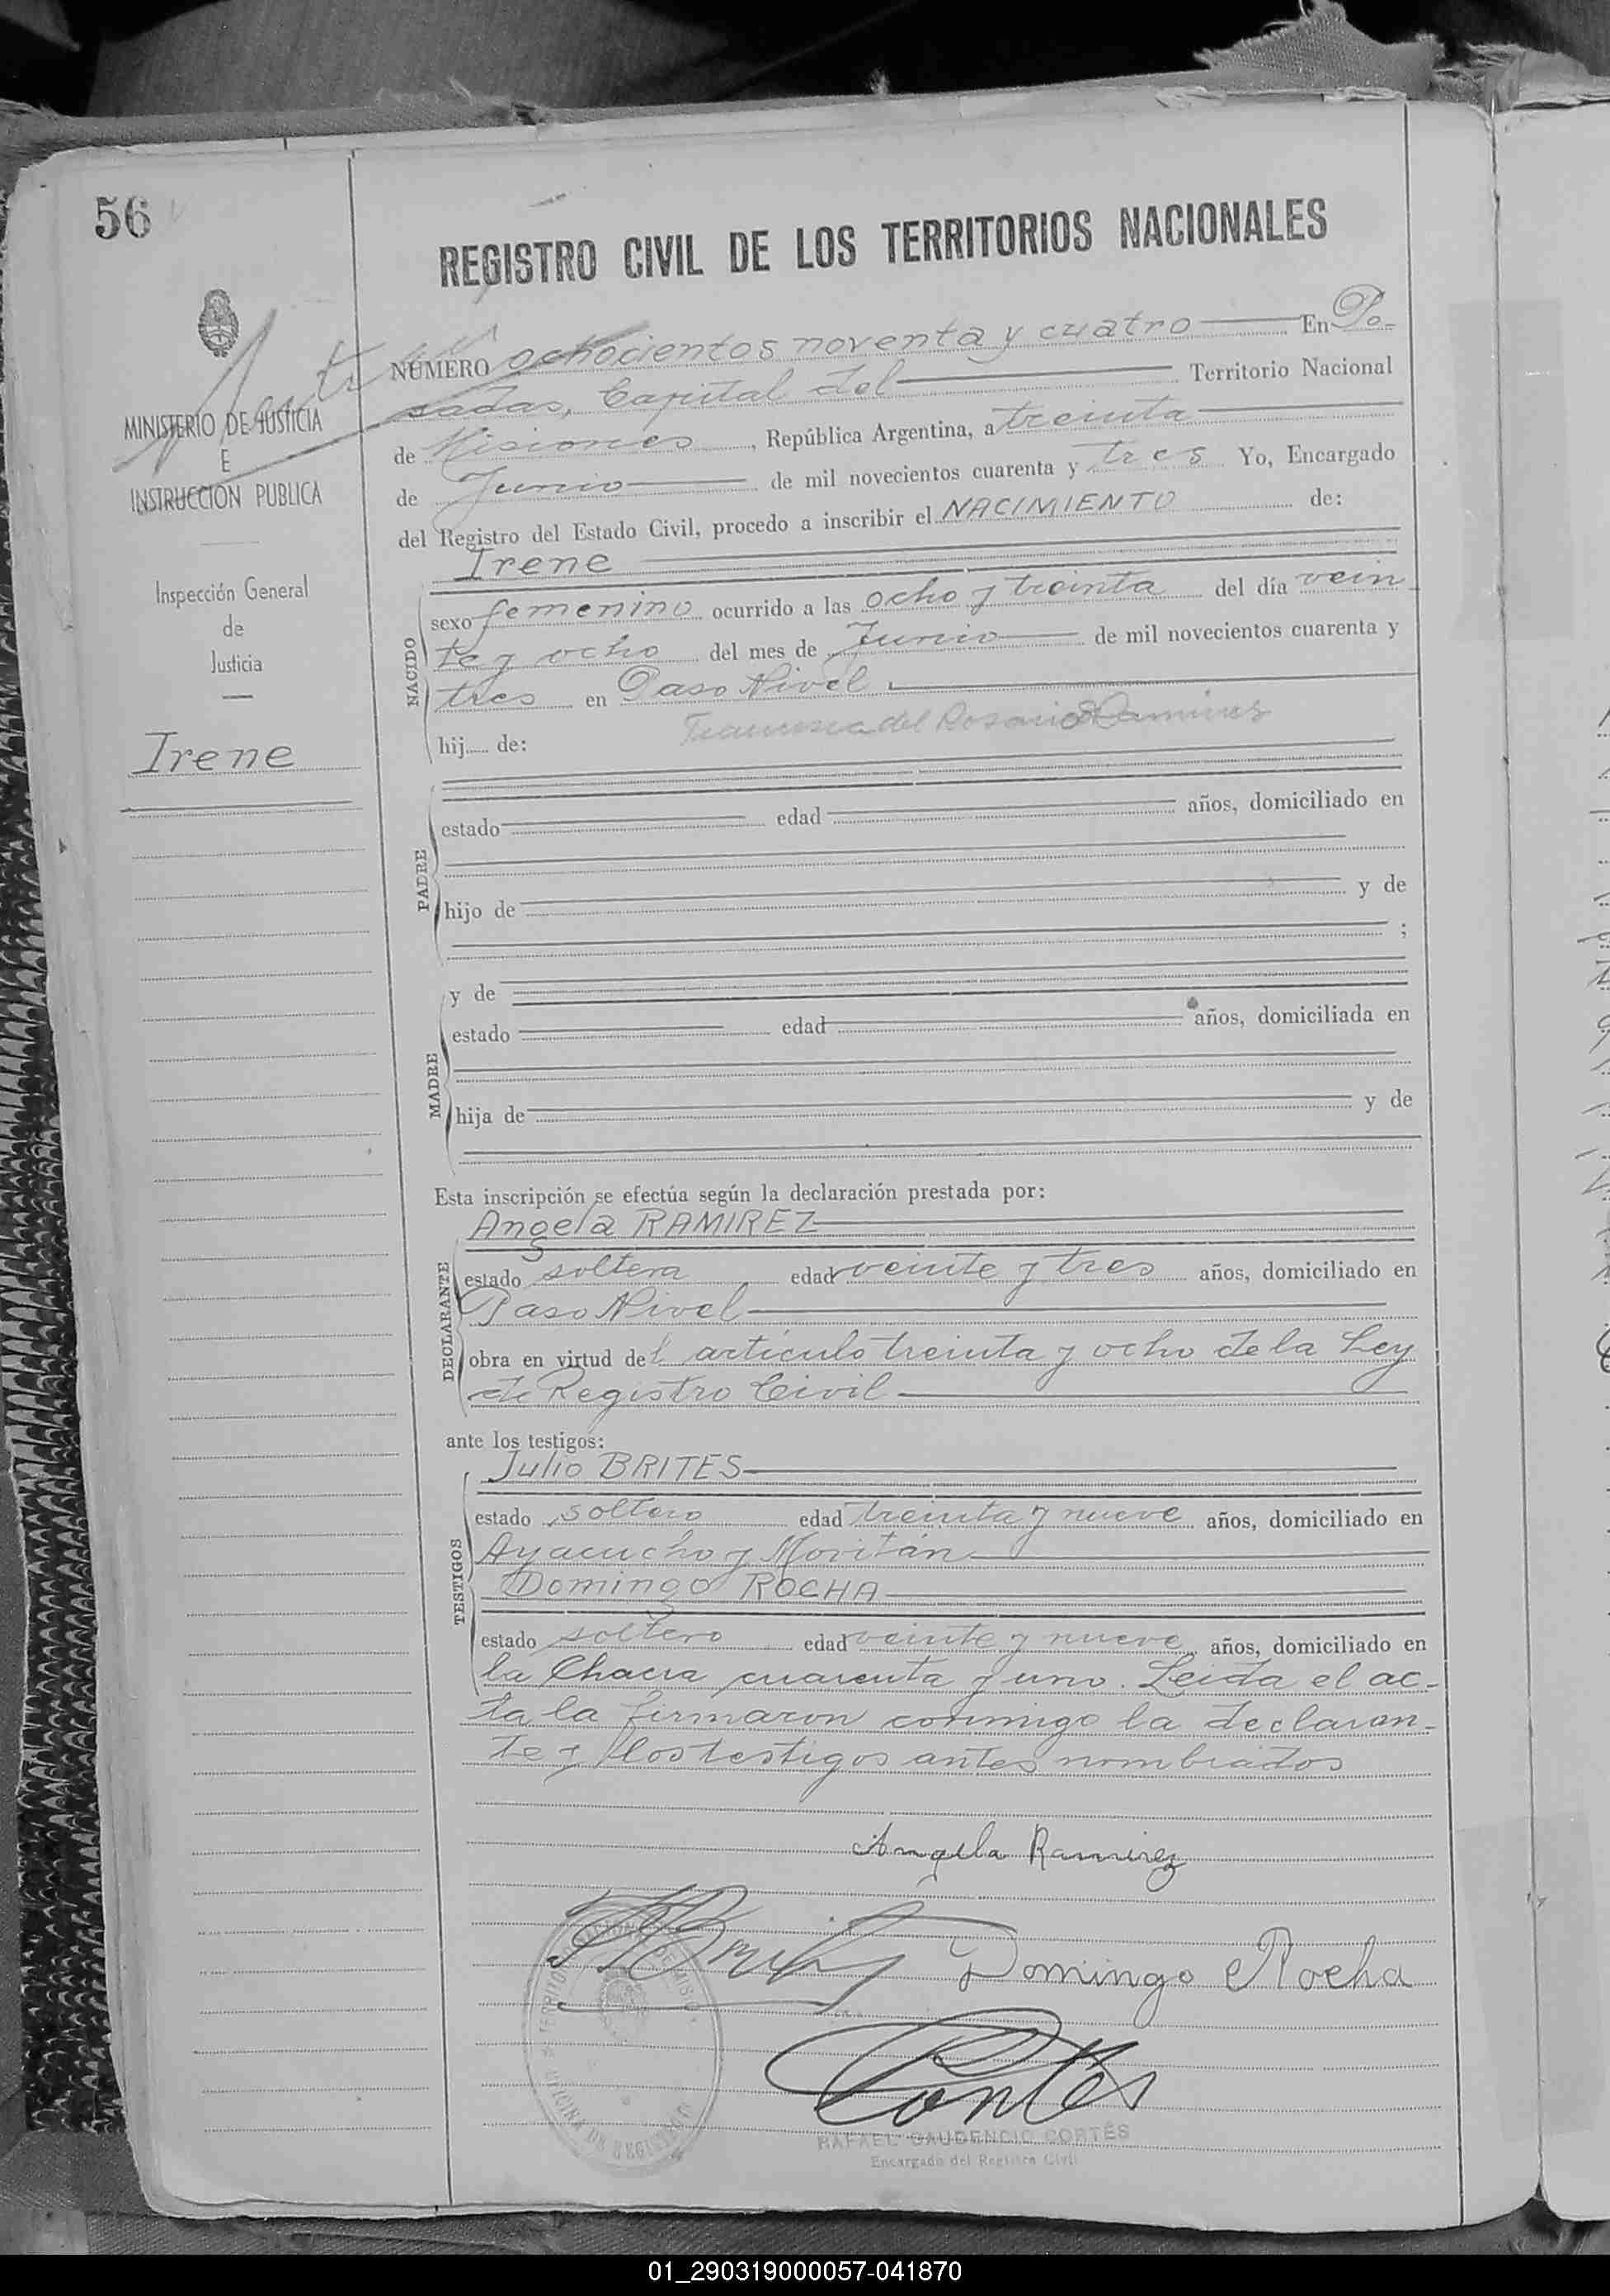 56
REGISTRO CIVIL DE LOS TERRITORIOS NACIONALES
MINISTERIO DE JUSTICIA
E
INSTRUCCIÓN PUBLICA
Inspección General
de
Justicia
Irene
NÚMERO ochocientos noventa y cuatro En Po-
sadas, Capital del Territorio Nacional
de Misiones, República Argentina, a treinta
de Junio de mil novecientos cuarenta y tres Yo, Encargado
del Registro del Estado Civil, procedo a inscribir el NACIMIENTO de:
Irene
NACIDO
sexo femenino ocurrido a las ocho y treinta del día vein
te y ocho del mes de Junio de mil novecientos cuarenta y
tres en Paso Nivel
hij de: del Rosario Ramirez
PADRE
estado edad años, domiciliado en
hijo de y de
;
MADRE
y de
estado edad años, domiciliada en
hija de y de
Esta inscripción se efectúa según la declaración prestada por:
DECLARANTE
Angela RAMIREZ
estado soltera edad veinte y tres años, domiciliado en
Paso Nivel
obra en virtud del artículo treinta y ocho de la Ley
de Registro Civil
ante los testigos:
TESTIGOS
Julio BRITES
estado soltero edad treinta y nueve años, domiciliado en
Ayacucho y Moritán
Domingo ROCHA
estado soltero edad veinte y nueve años, domiciliado en
la Chacra cuarenta y uno. Leida el ac-
ta la firmaron conmigo la declaran-
te y los testigos antes nombrados
Angela Ramirez
Domingo Rocha
Cortés
RAFAEL GAUDENCIO CORTÉS
Encargado del Registro Civil
OFICINA DE REGISTRO
01_290319000057-041870